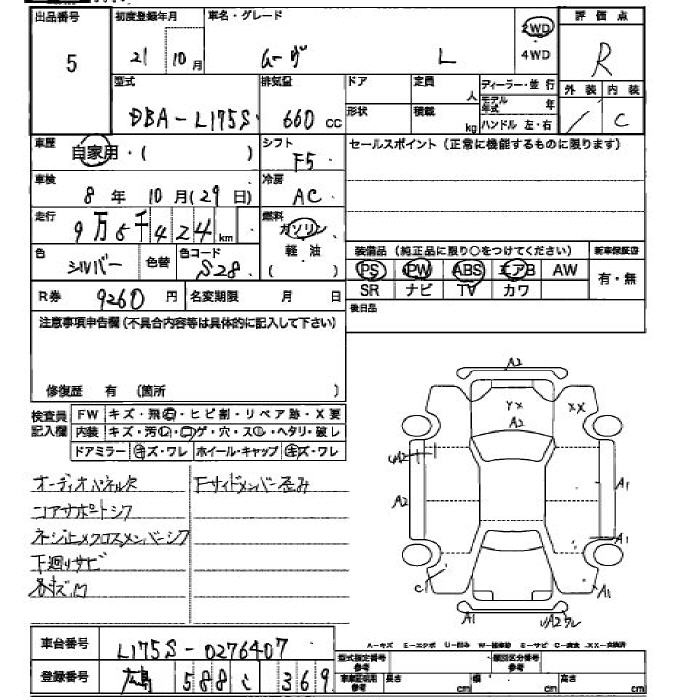 出品番号 初度登録年月 車名・グレード 評価点
5 21年10月 ムーヴ L 2WD 4WD R
型式 排気量 ドア 定員 人 ディーラー・並行 外装 内装
DBA-L175S 660cc 形状 積載 kg モデル年式 年 C
ハンドル 左・右
車歴 自家用・( ) シフト F5 セールスポイント(正常に機能するものに限ります)
車検 8年10月(29日) 冷房 AC
走行 9万5千424km 燃料 ガソリン 軽油 ( )
色 シルバー 色替 色コード S28
装備品(純正品に限り○をつけてください) 新車保証書
PS PW ABS エアB AW 有・無
SR ナビ TV カワ
R券 9260円 名変期限 月 日 後日品
注意事項申告欄(不具合内容等は具体的に記入して下さい)
修復歴 有 (箇所 )
検査員記入欄 FW キズ・飛石・ヒビ割・リペア跡・X要
内装 キズ・汚レ・コゲ・穴・スレ・ヘタリ・破レ
ドアミラー キズ・ワレ ホイール・キャップ キズ・ワレ
オーディオパネル欠 Fサイドメンバー歪み
コアサポートシワ
ネジ止メクロスメンバーシワ
下廻りサビ
各キズ凹
A2
YX XX
A2
A2
A2 A1
A1
C1
A1 A2ワレ
A-キズ E-エクボ U-凹み W-補修跡 S-サビ C-腐食 XX-交換済
車台番号 L175S-0276407 型式指定番号 参考 類別区分番号 参考
登録番号 広島 588 369 車庫証明用 参考 長さ cm 幅 cm 高さ cm